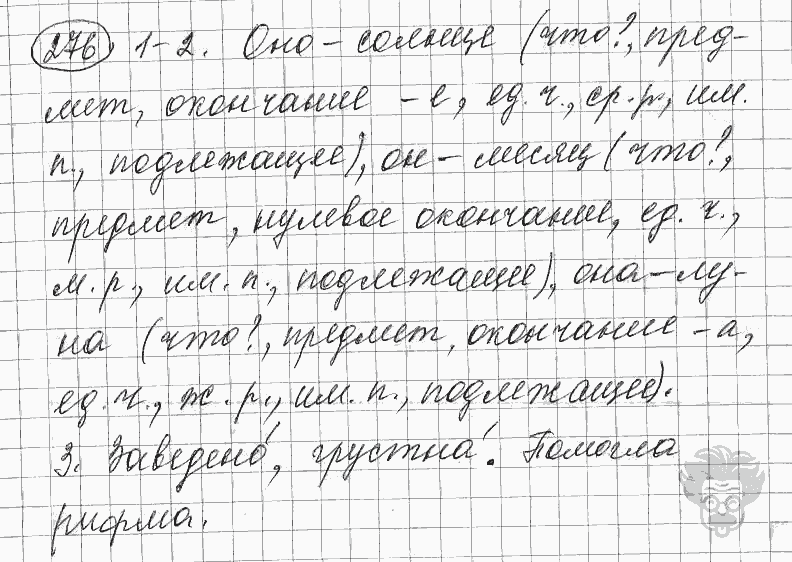 276. 1-2. Оно - солнце (что?, пред-
мет, окончание -е, ед. ч., ср. р., им.
п., подлежащее), он - месяц (что?,
предмет, нулевое окончание, ед. ч.,
м. р., им. п., подлежащее), она - лу-
на (что?, предмет, окончание -а,
ед. ч., ж. р., им. п., подлежащее).
3. Заведено́, грустна́. Помогла
рифма.